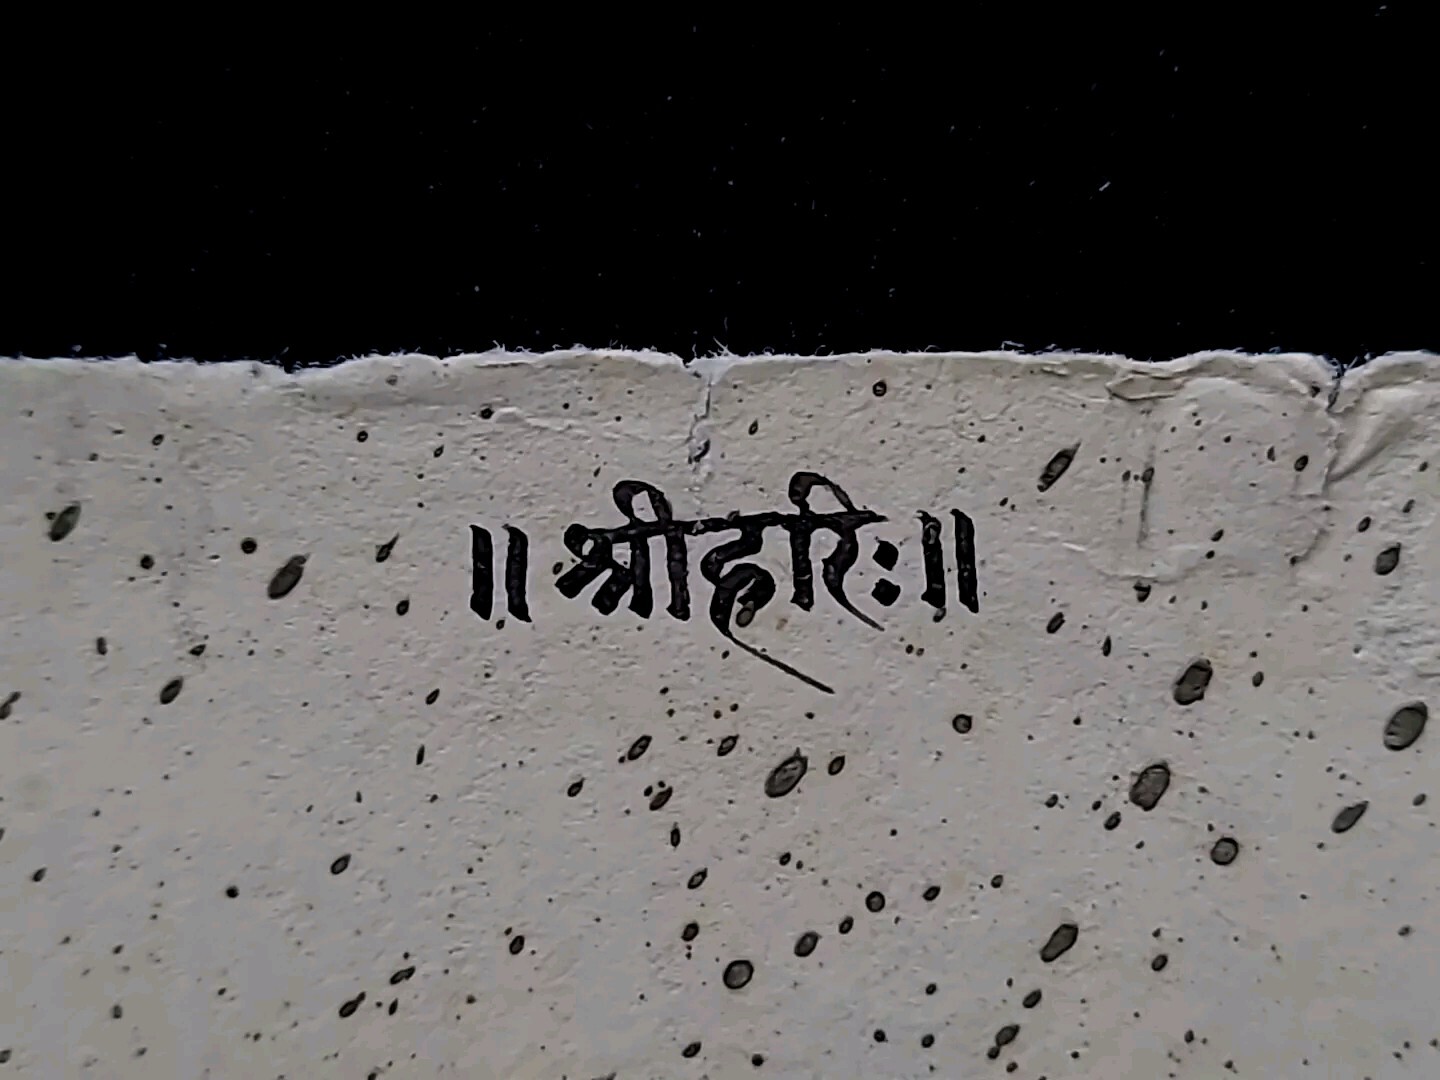 ॥ श्रीहरिः ॥